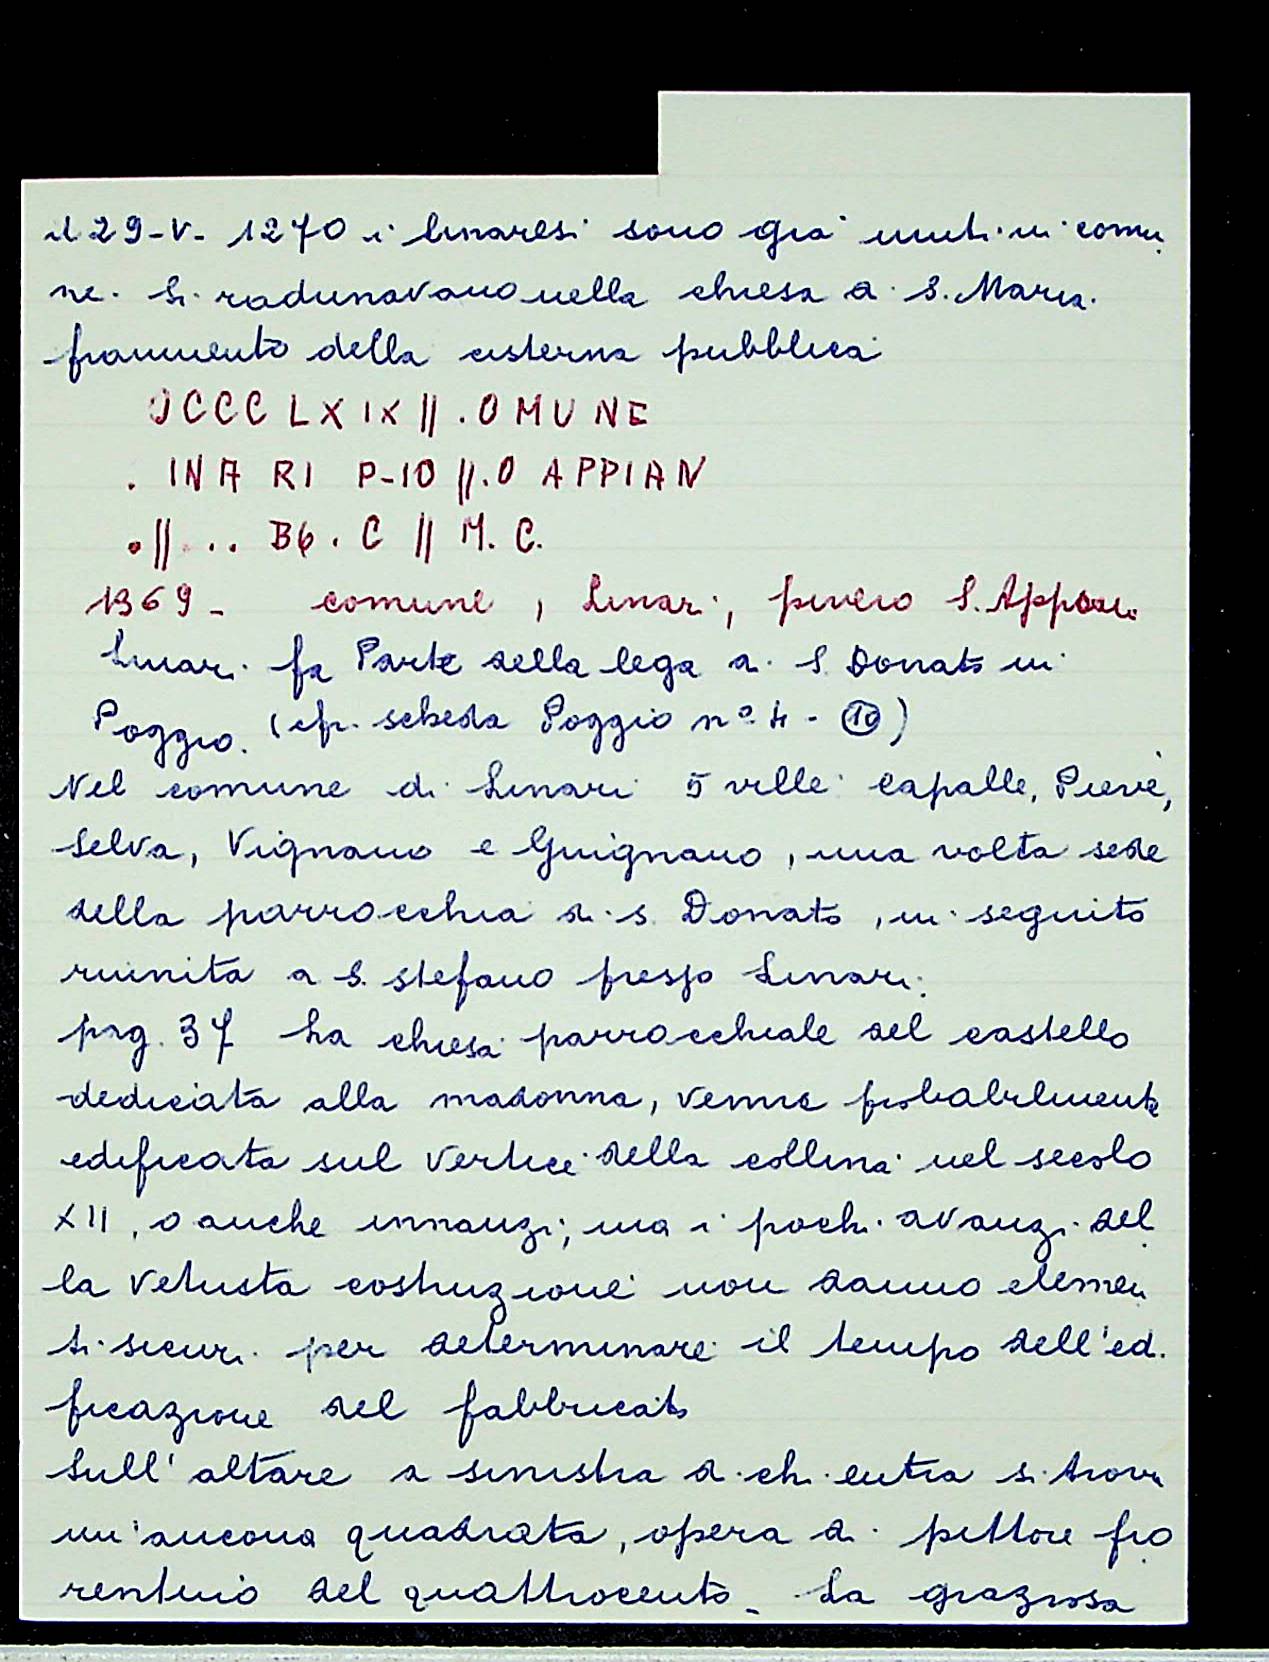 il 29-V-1270 i linaresi sono già uniti in comu
ne. Si radunavano nella chiesa di S. Maria.
frammento della cisterna pubblica
JCCC LXIX || .OMUNE
. INARI P-IO ||.O APPIAN
.|| ... B6. C || M. C.
1369 - comune, Linari, piviero S. Appiani
Linari fa Parte della lega di S. Donato in
Poggio. (cfr. scheda Poggio n° 4 - 10)
Nel comune di Linari 5 ville: Capalle, Pieve,
Selva, Vignano e Guignano, una volta sede
della parrocchia di S. Donato, in seguito
riunita a S. Stefano presso Linari.
pag. 37 La chiesa parrocchiale del castello
dedicata alla madonna, venne probabilmente
edificata sul vertice della collina nel secolo
XII, o anche innanzi; ma i pochi avanzi del
la vetusta costruzione non danno elemen
ti sicuri per determinare il tempo dell'edi
ficazione del fabbricato
Sull'altare a sinistra di chi entra si trova
un'ancona quadrata, opera di pittore fio
rentino del quattrocento. La graziosa